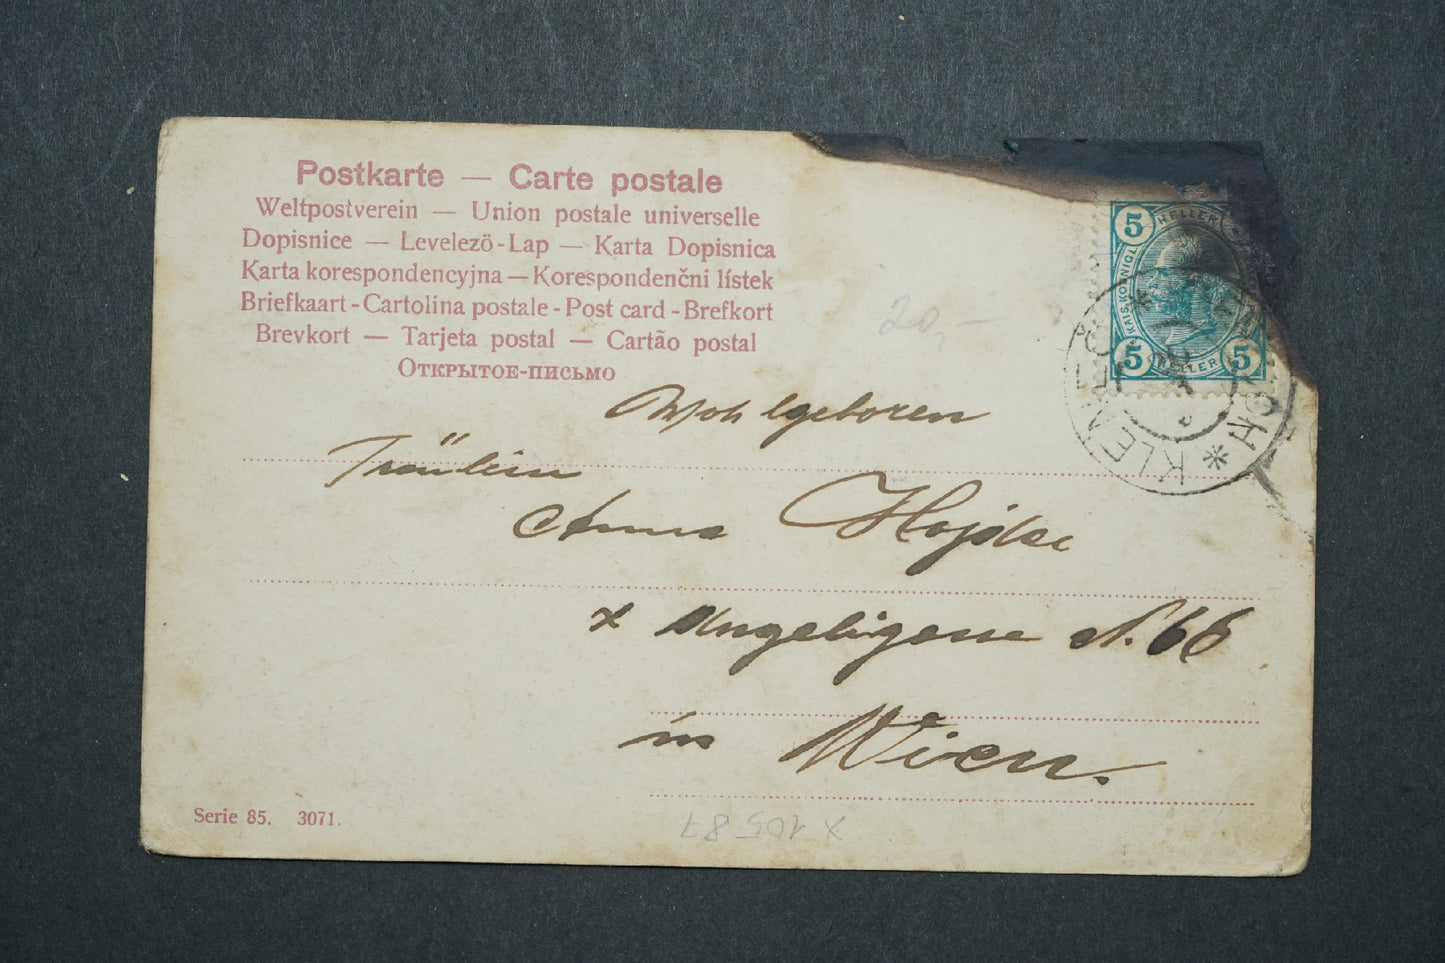 Postkarte — Carte postale
Weltpostverein — Union postale universelle
Dopisnice — Levelezö-Lap — Karta Dopisnica
Karta korespondencyjna — Korespondenčni lístek
Briefkaart - Cartolina postale - Post card - Brefkort
Brevkort — Tarjeta postal — Cartão postal
Открытое-письмо
5 HELLER
KAIS. KÖNIGL.
5 HELLER 5
20,—
Wohlgeboren
Fräulein
Anna
X N. 66
in Wien.
Serie 85. 3071.
X 10587